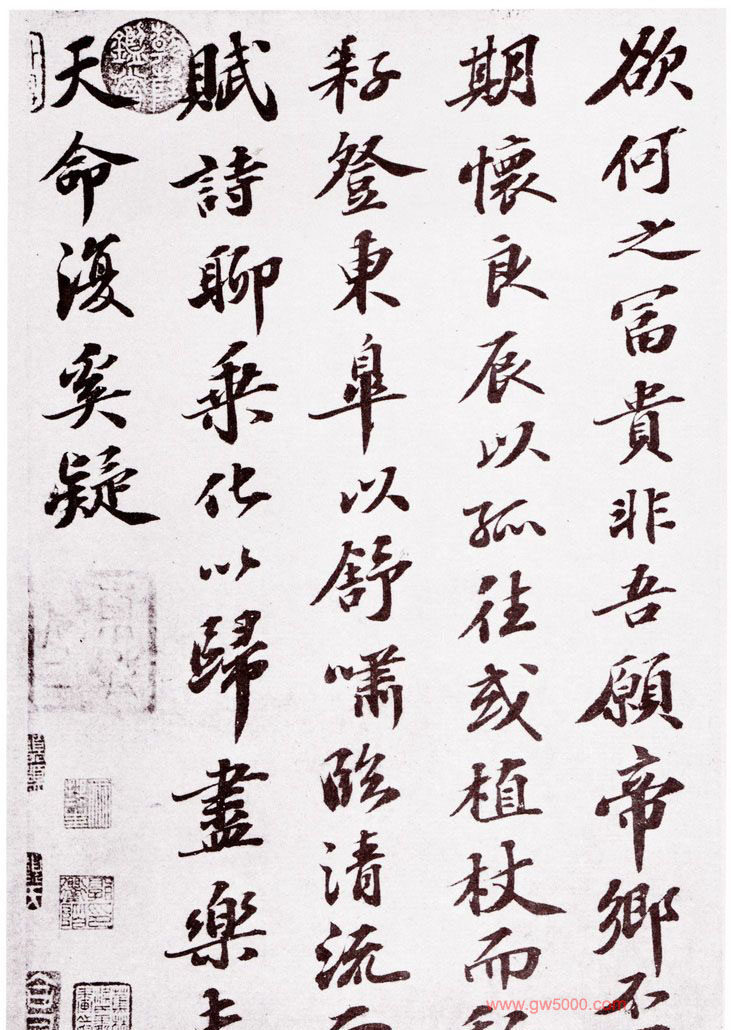 欲何之冨貴非吾願帝鄉不
期懷良辰以孤往或植杖而
耔登東皐以舒嘯臨清流
賦詩聊乗化以歸盡樂
天命復奚疑
www.gw5000.com